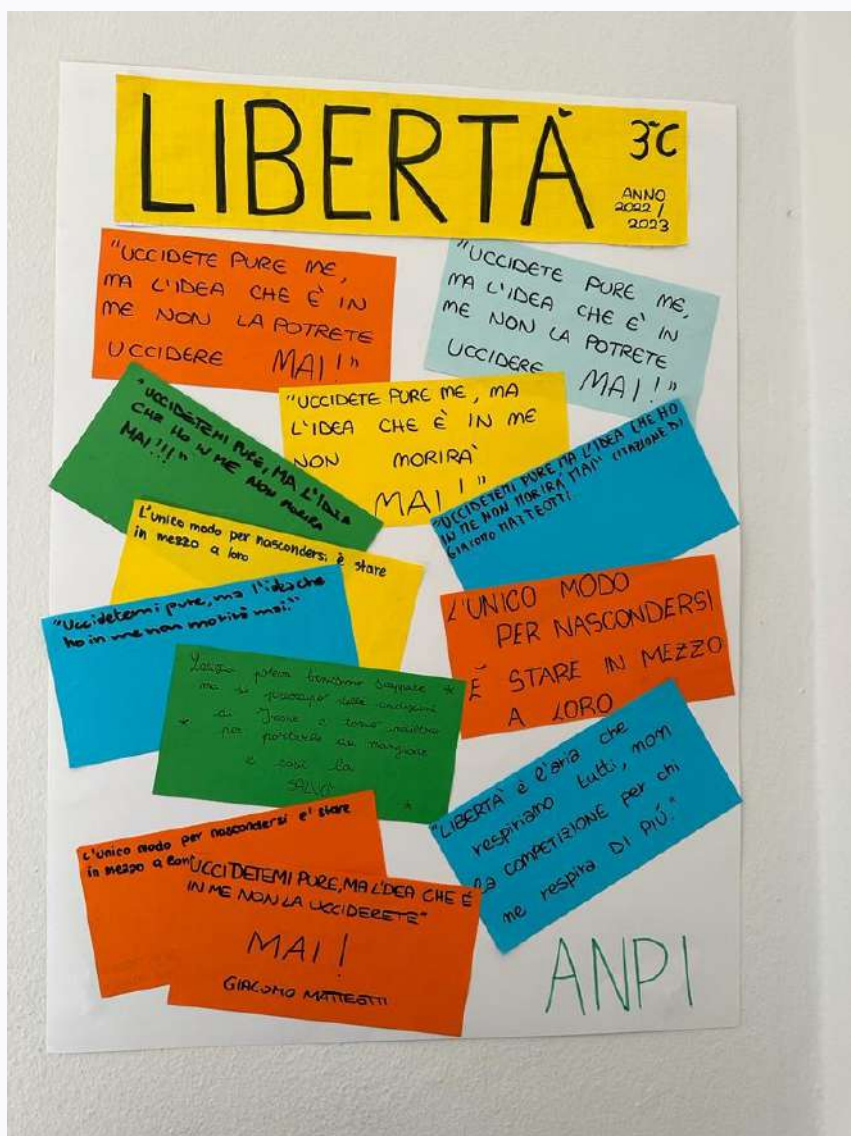 LIBERTÀ
3ªC
ANNO
2022/
2023
"UCCIDETE PURE ME,
MA L'IDEA CHE È IN
ME NON LA POTRETE
UCCIDERE MAI!"
"UCCIDETE PURE ME,
MA L'IDEA CHE E' IN
ME NON LA POTRETE
UCCIDERE MAI!"
"UCCIDETEMI PURE, MA L'IDEA
CHE HO IN ME NON MORIRA
MAI!!!"
"UCCIDETE PURE ME, MA
L'IDEA CHE È IN ME
NON MORIRA'
MAI!"
"UCCIDETEMI PURE, MA L'IDEA CHE HO
IN ME NON MORIRA MAI" (CITAZIONE DI
GIACOMO MATTEOTTI
L'unico modo per nascondersi è stare
in mezzo a loro
"Uccidetemi pure, ma l'idea che
ho in me non morirà mai."
L'UNICO MODO
PER NASCONDERSI
È STARE IN MEZZO
A LORO
poteva benissimo scappare *
ma si delle condizioni
* di e tornò indietro
per portarle da mangiare
e così la
SALVÒ *
"LIBERTÀ è l'aria che
respiriamo tutti, non
la COMPETIZIONE per chi
ne respira DI PIÚ."
L'unico modo per nascondersi e' stare
in mezzo a loro
"UCCIDETEMI PURE, MA L'IDEA CHE È
IN ME NON LA UCCIDERETE"
MAI!
GIACOMO MATTEOTTI
ANPI